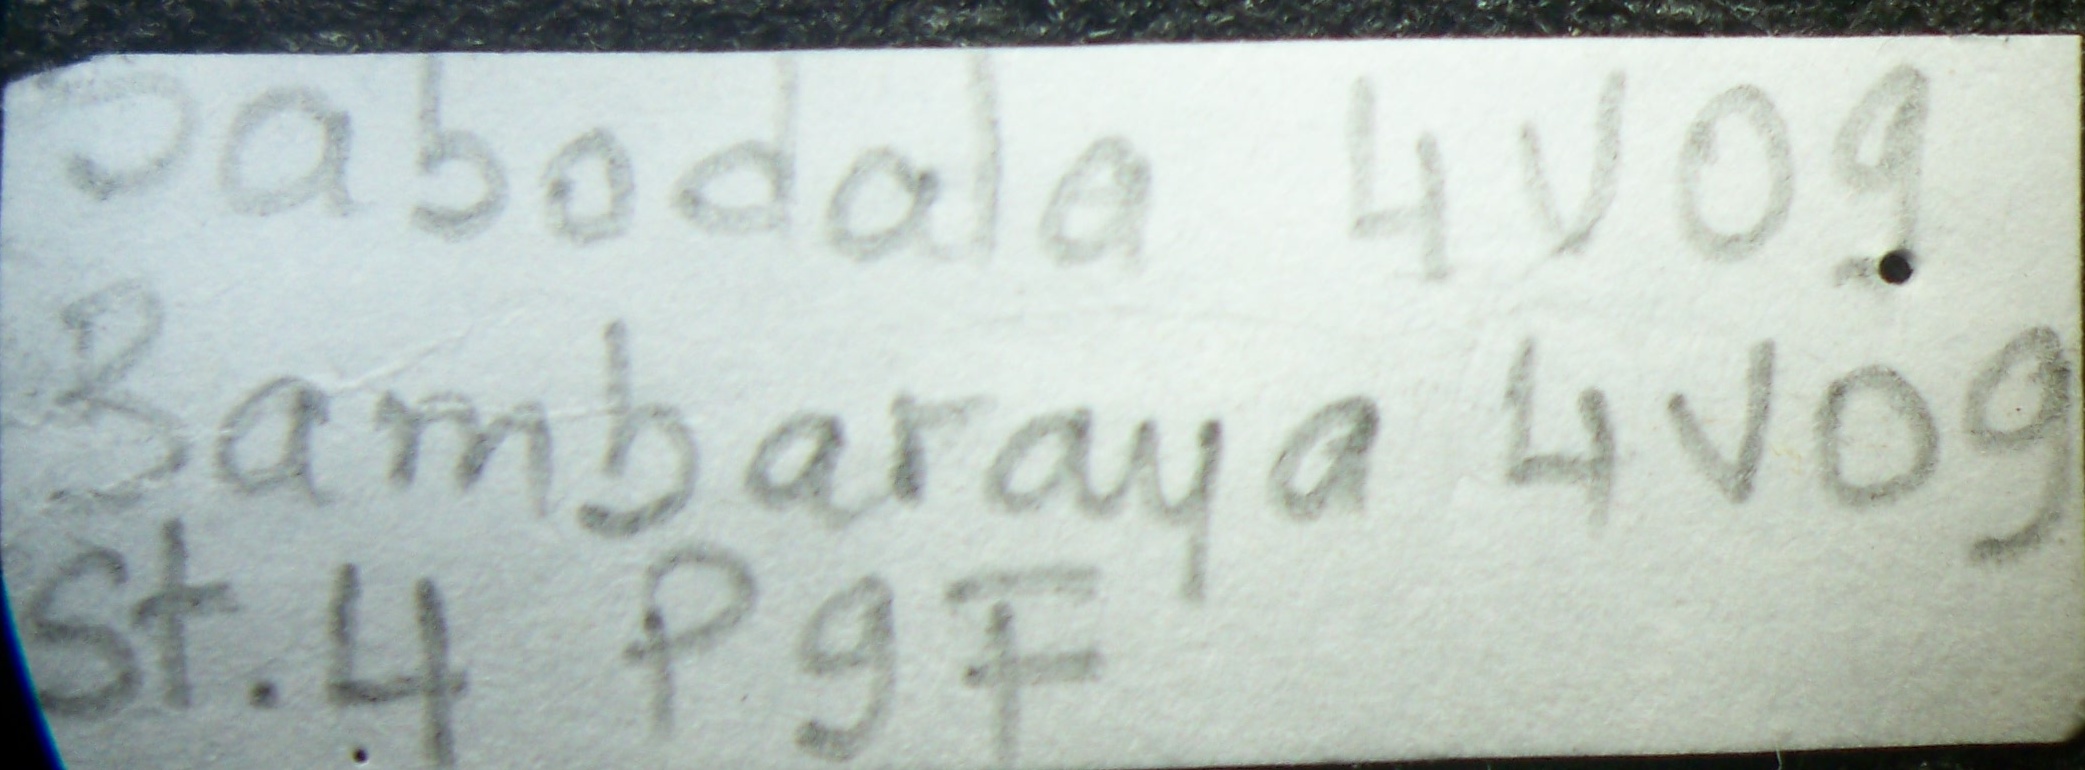 Sabodala 4V09
Bambaraya 4V09
St.4 P9F